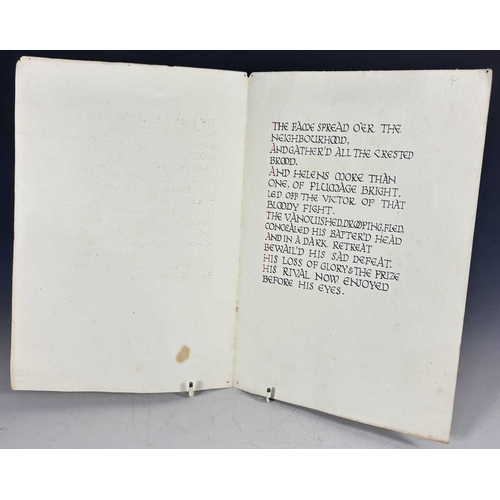 THE FAME SPREAD O'ER THE
NEIGHBOURHOOD,
AND GATHER'D ALL THE CRESTED
BROOD.
AND HELENS MORE THAN
ONE, OF PLUMAGE BRIGHT,
LED OFF THE VICTOR OF THAT
BLOODY FIGHT.
THE VANQUISHED, DROOPING, FLED,
CONCEALED HIS BATTER'D HEAD
AND IN A DARK RETREAT
BEWAIL'D HIS SAD DEFEAT.
HIS LOSS OF GLORY & THE PRIZE
HIS RIVAL NOW ENJOYED
BEFORE HIS EYES.